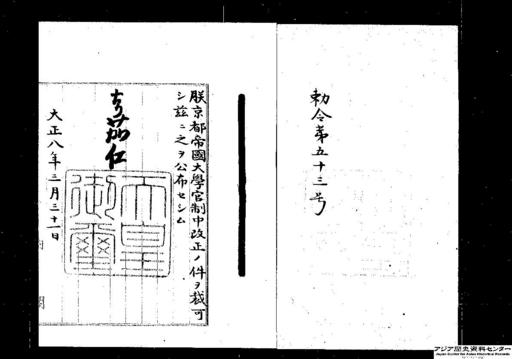 勅令第五十三号
朕京都帝國大學官制中改正ノ件ヲ裁可
シ茲ニ之ヲ公布セシム
嘉仁
天皇
御璽
大正八年三月三十一日
アジア歴史資料センター
Japan Center for Asian Historical Records